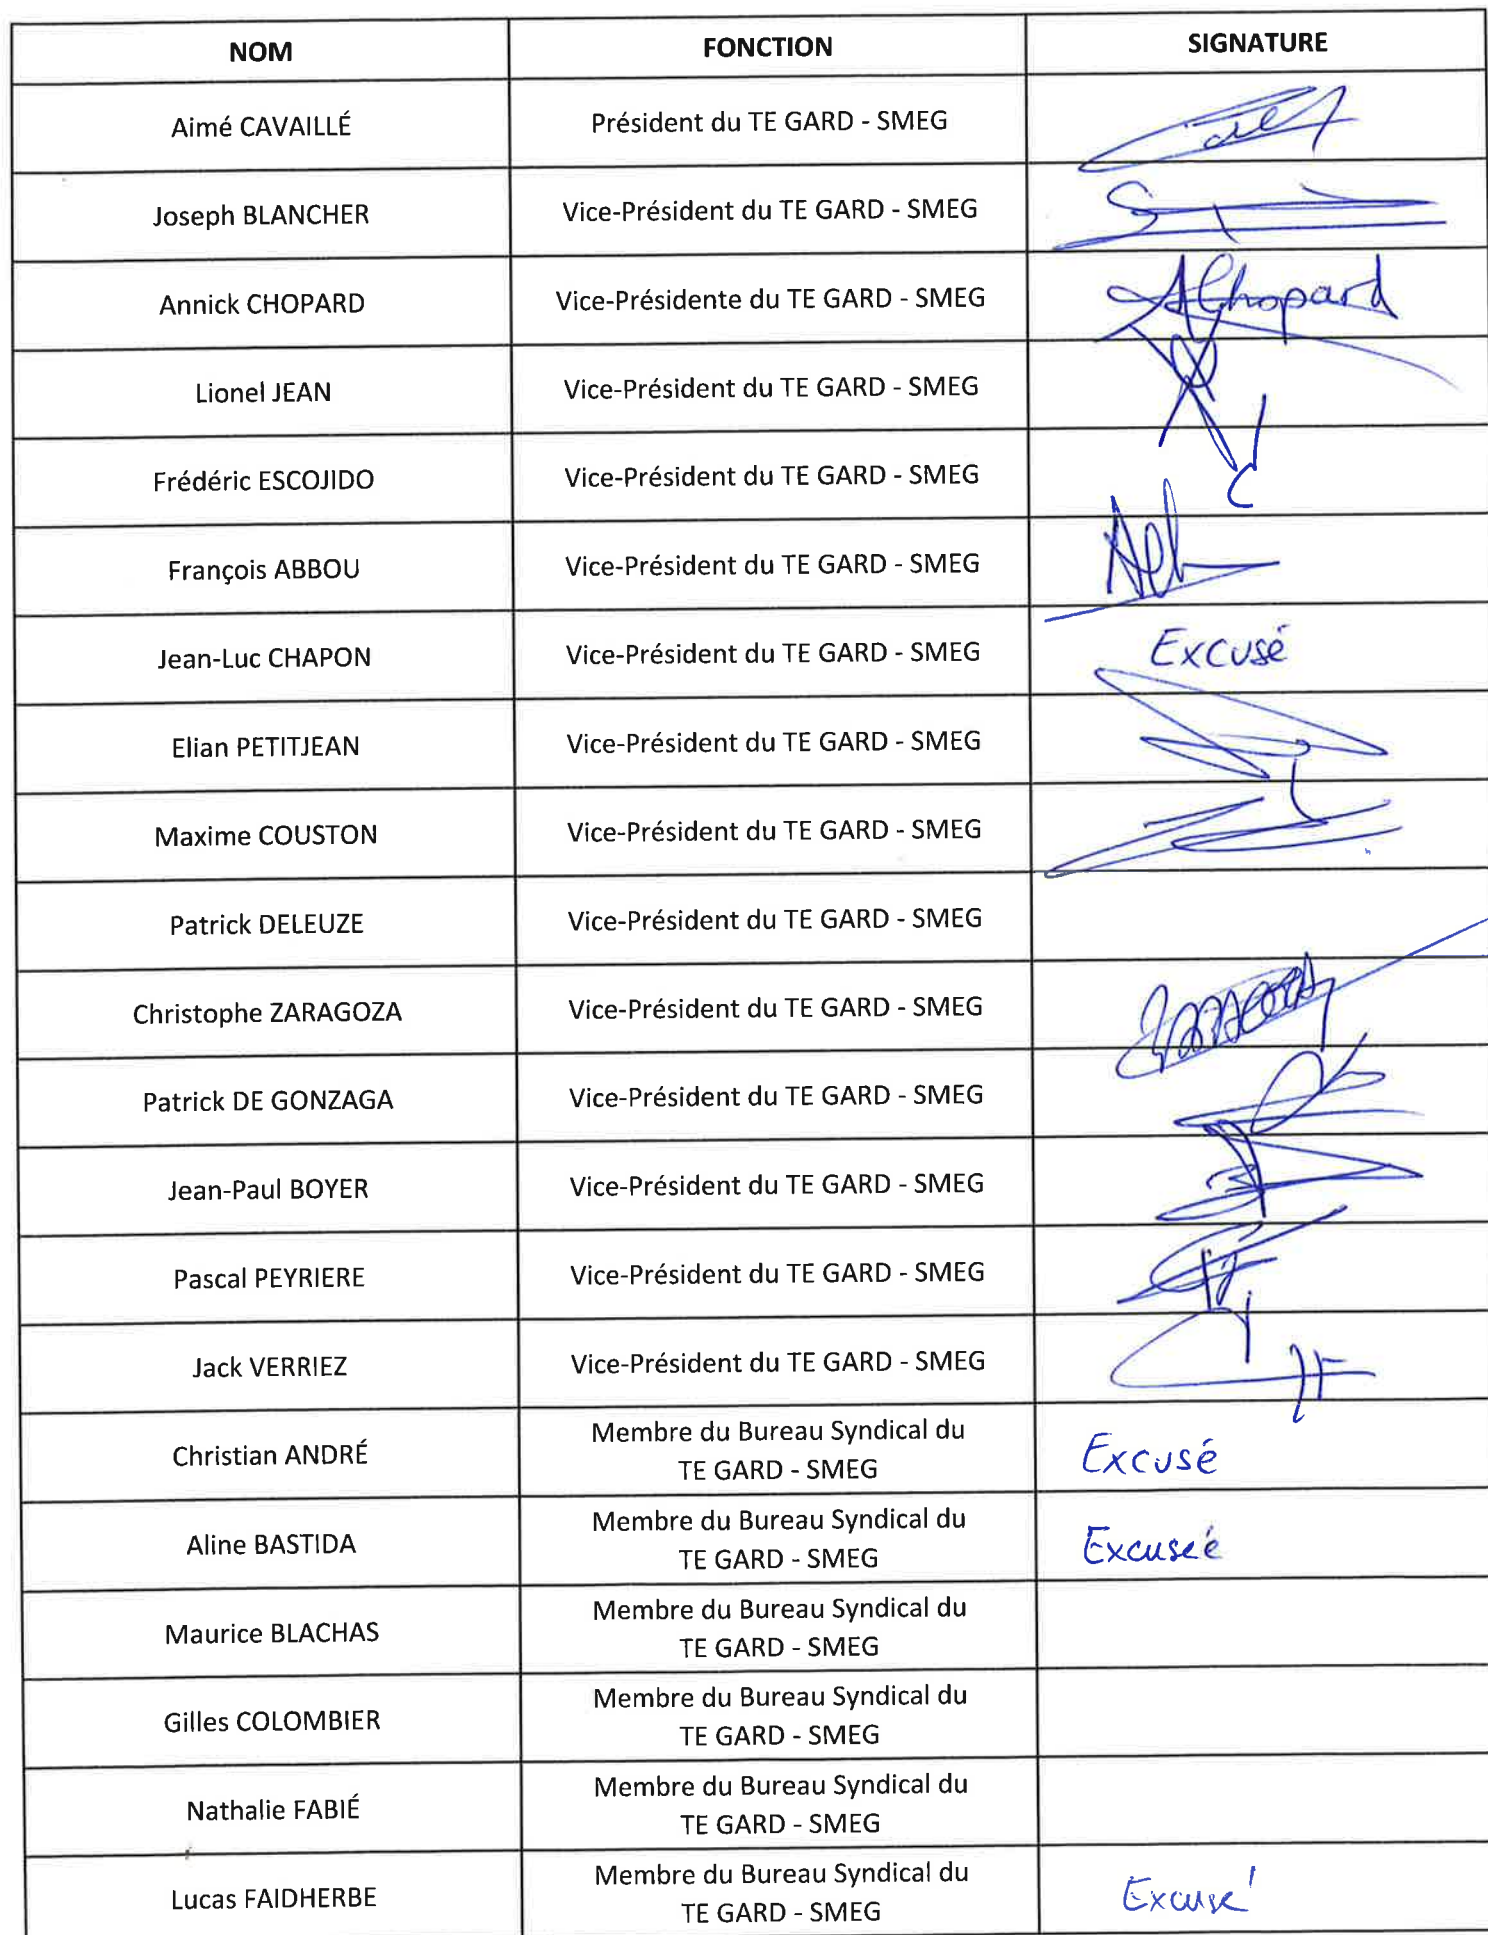 NOM FONCTION SIGNATURE
Aimé CAVAILLÉ Président du TE GARD - SMEG
Joseph BLANCHER Vice-Président du TE GARD - SMEG
Annick CHOPARD Vice-Présidente du TE GARD - SMEG AChopard
Lionel JEAN Vice-Président du TE GARD - SMEG
Frédéric ESCOJIDO Vice-Président du TE GARD - SMEG
François ABBOU Vice-Président du TE GARD - SMEG
Jean-Luc CHAPON Vice-Président du TE GARD - SMEG Excusé
Elian PETITJEAN Vice-Président du TE GARD - SMEG
Maxime COUSTON Vice-Président du TE GARD - SMEG
Patrick DELEUZE Vice-Président du TE GARD - SMEG
Christophe ZARAGOZA Vice-Président du TE GARD - SMEG
Patrick DE GONZAGA Vice-Président du TE GARD - SMEG
Jean-Paul BOYER Vice-Président du TE GARD - SMEG
Pascal PEYRIERE Vice-Président du TE GARD - SMEG
Jack VERRIEZ Vice-Président du TE GARD - SMEG
Christian ANDRÉ Membre du Bureau Syndical du
TE GARD - SMEG Excusé
Aline BASTIDA Membre du Bureau Syndical du
TE GARD - SMEG Excuseé
Maurice BLACHAS Membre du Bureau Syndical du
TE GARD - SMEG
Gilles COLOMBIER Membre du Bureau Syndical du
TE GARD - SMEG
Nathalie FABIÉ Membre du Bureau Syndical du
TE GARD - SMEG
Lucas FAIDHERBE Membre du Bureau Syndical du
TE GARD - SMEG Excusé